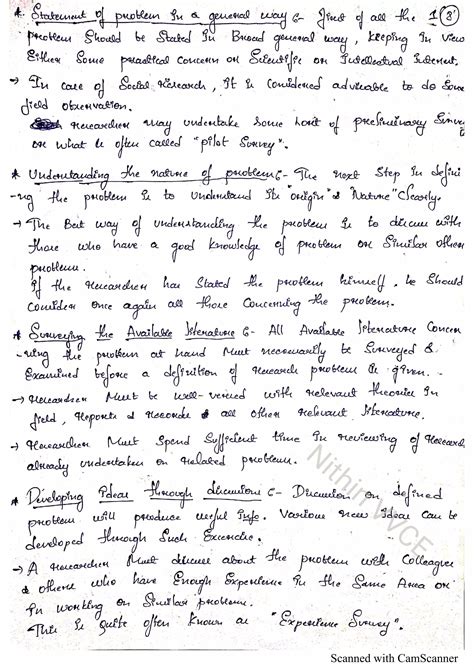 * Statement of problem in a general way :- First of all the 1(3)
problem should be stated in Broad general way, keeping in view
Either some practical concern or Scientific or Intellectual Interest.
→ In case of Social Research, It is considered advisable to do some
field observation.
Researcher may undertake some sort of preliminary Survey
or what is often called "pilot Survey".
* Understanding the nature of problem :- The next step in defini
-ng the problem is to understand its "origin" & "Nature" clearly.
→ The Best way of understanding the problem is to discuss with
those who have a good knowledge of problem or similar other
problem.
If the researcher has stated the problem himself, he Should
consider once again all those concerning the problem.
* Surveying the Available literature :- All Available literature Concer
-ning the problem at hand Must necessarily be Surveyed &
Examined before a definition of research problem is given.
→ Researcher Must be well-versed with relevant theories in
field, Reports & records & all other relevant literature.
→ Researcher Must spend sufficient time in reviewing of Research
already undertaken on related problem.
* Developing Ideas through discussion :- Discussion on defined
problem will produce useful info. Various new Ideas can be
developed through Such Exercise.
→ A researcher Must discuss about the problem with Colleagues
& others who have Enough Experience in the Same Area or
in working on Similar problem.
This is quite often known as "Experience Survey".
Nithin VVCE
Scanned with CamScanner